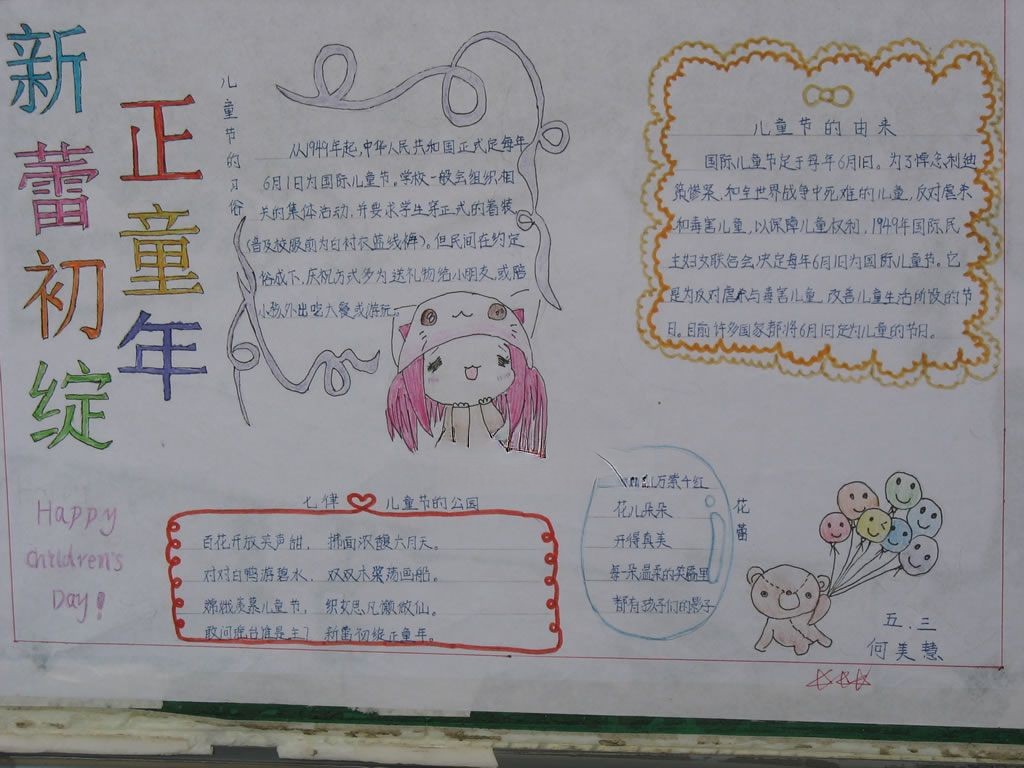 新蕾初绽
正童年
儿童节的习俗
从1949年起,中华人民共和国正式定每年
6月1日为国际儿童节。学校一般会组织相
关的集体活动,并要求学生穿正式的着装
(普及校服前为白衬衣蓝线裤)。但民间在约定
俗成下,庆祝方式多为送礼物给小朋友,或陪
小孩外出吃大餐或游玩。
儿童节的由来
国际儿童节定于每年6月1日。为了悼念利迪
策惨案,和全世界战争中死难的儿童,反对虐杀
和毒害儿童,以保障儿童权利,1949年国际民
主妇女联合会决定每年6月1日为国际儿童节。它
是为反对虐杀与毒害儿童,改善儿童生活所设的节
日。目前许多国家都将6月1日定为儿童的节日。
Happy
Children's
Day!
七律 儿童节的公园
百花开放笑声甜, 拂面浓馥六月天。
对对白鸭游碧水, 双双木桨荡画船。
嫦娥羡慕儿童节, 织女思凡懒做仙。
敢问瑶台谁是主? 新蕾初绽正童年。
花蕾
万紫千红
花儿朵朵
开得真美
每一朵温柔的笑靥里
都有孩子们的影子
五.三
何美慧